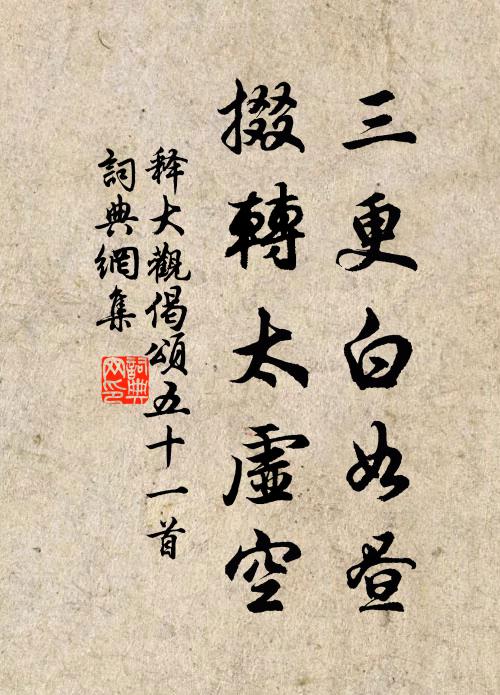 三更白如晝
掇轉太虛空
釋大觀偈頌五十一首
詞典網集
詞典
网印